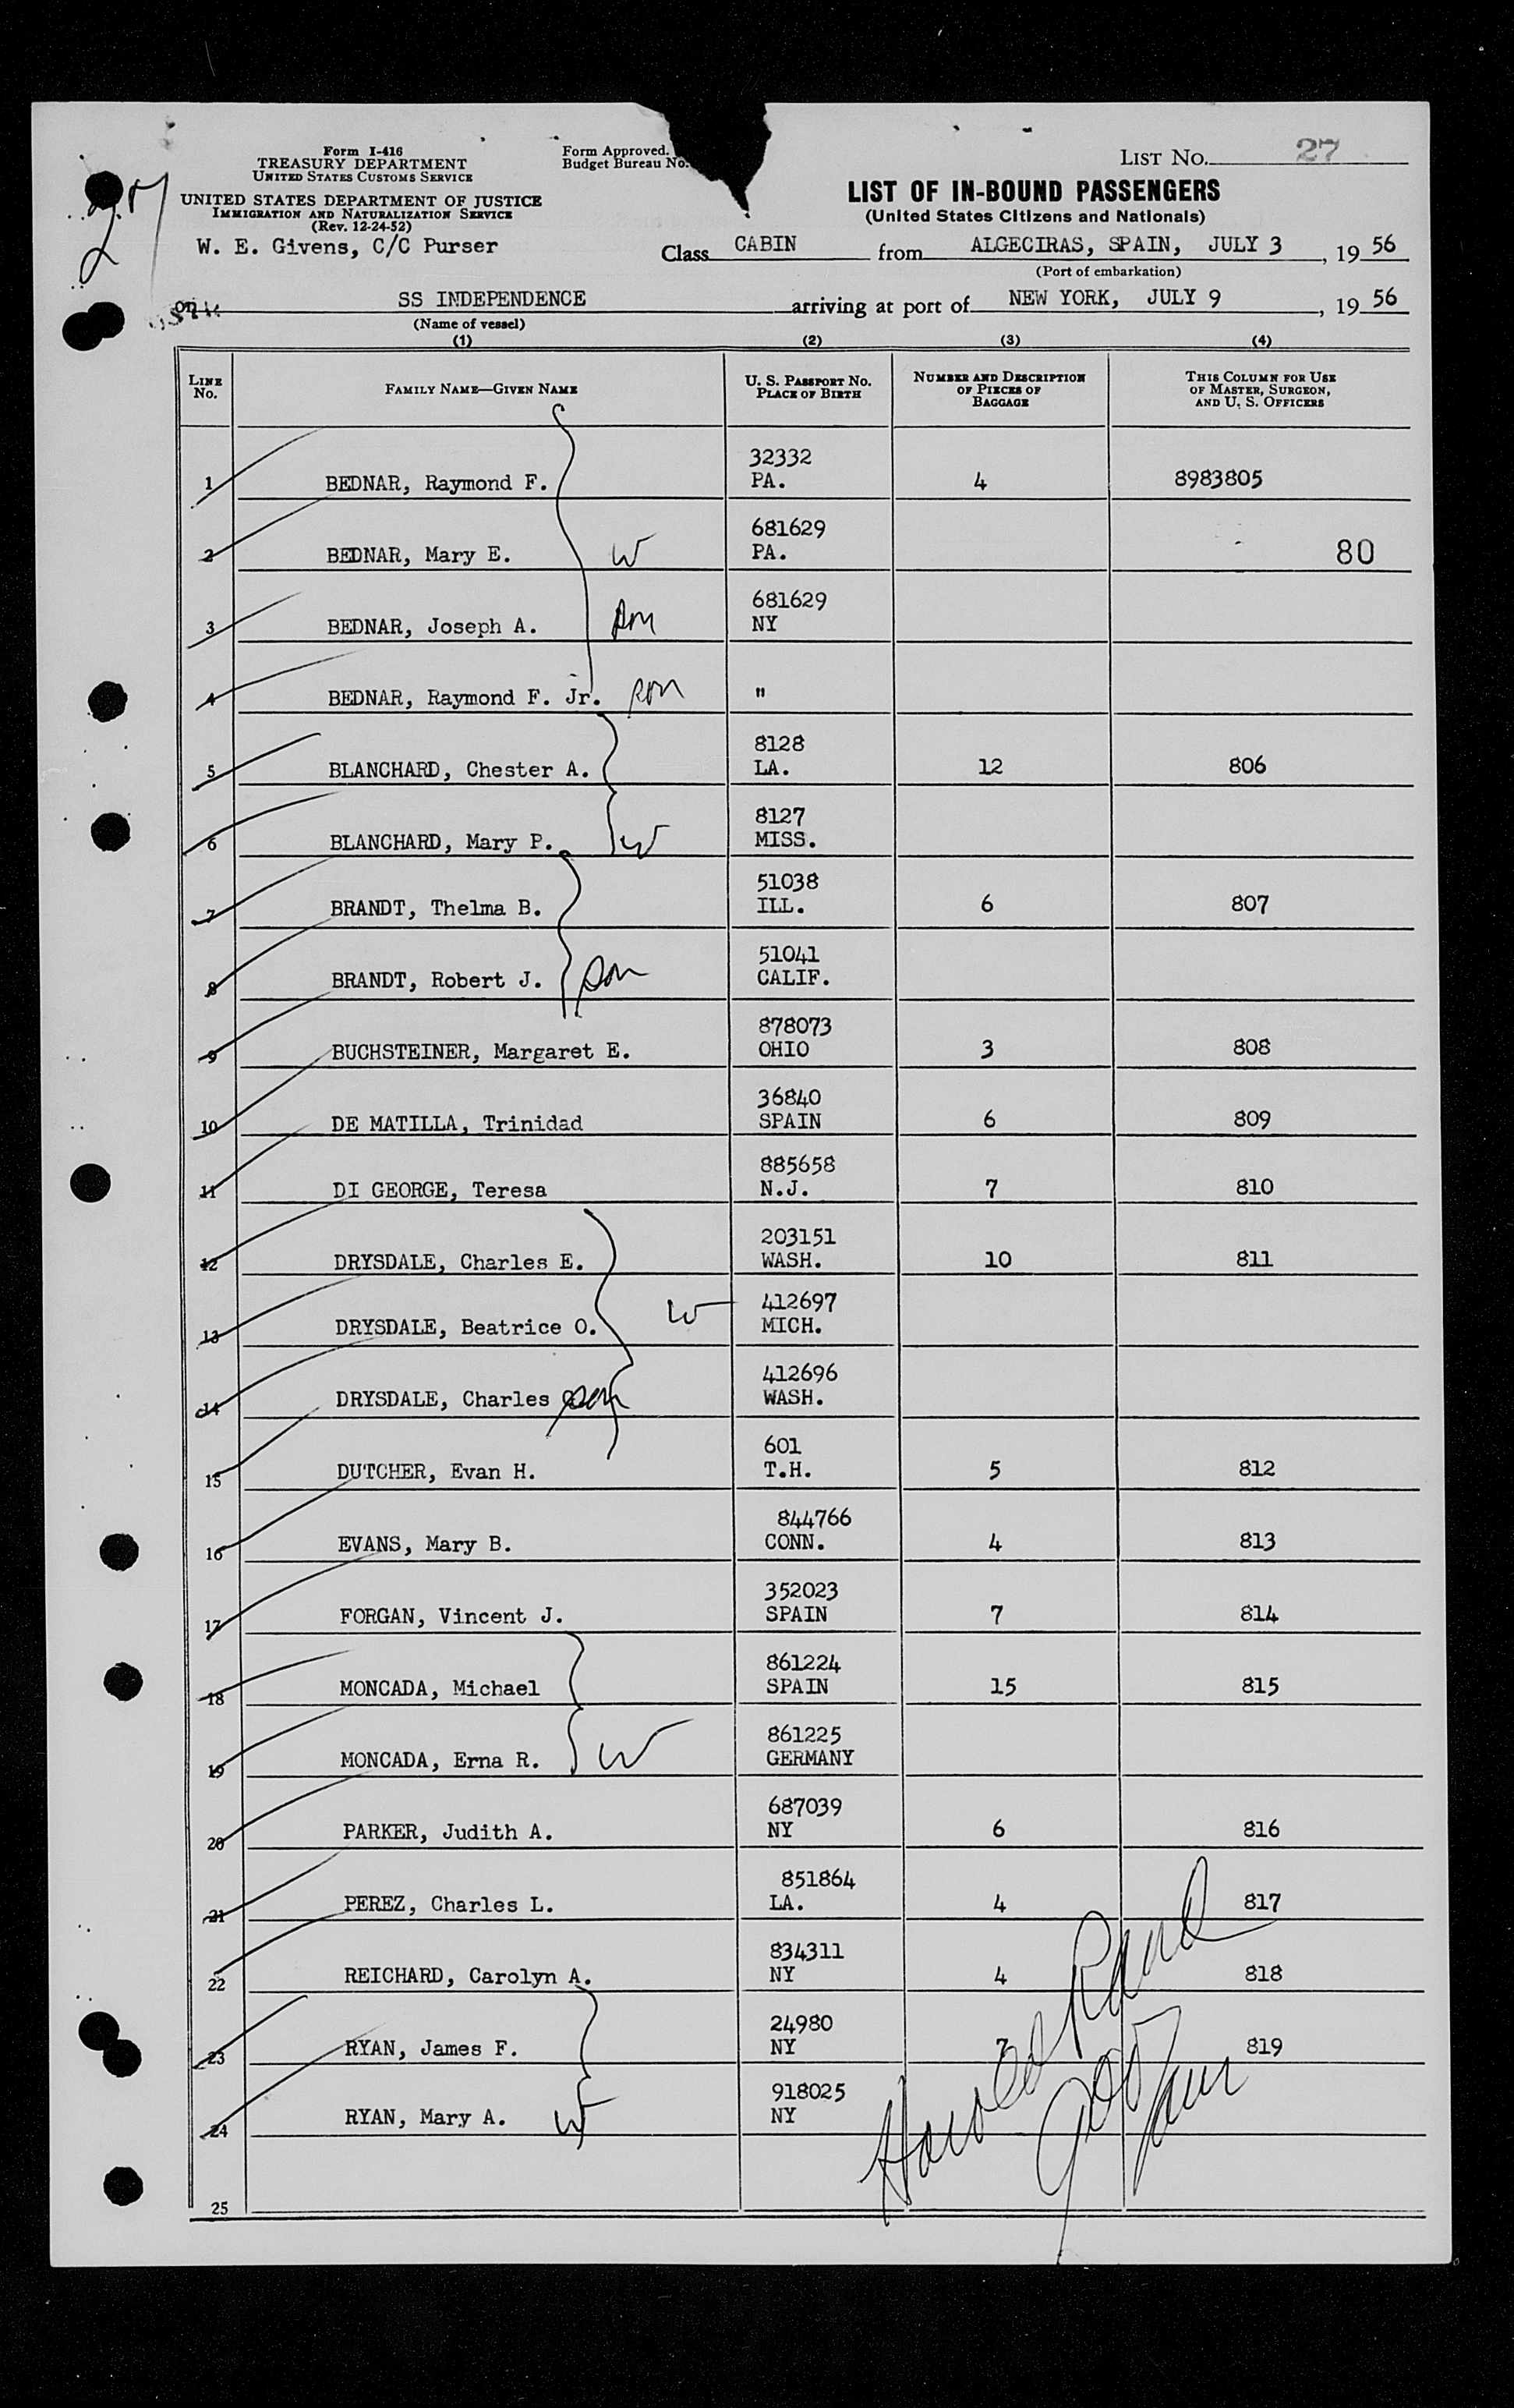 Form I-416
TREASURY DEPARTMENT
UNITED STATES CUSTOMS SERVICE
UNITED STATES DEPARTMENT OF JUSTICE
IMMIGRATION AND NATURALIZATION SERVICE
(Rev. 12-24-52)
Form Approved.
Budget Bureau No.
LIST NO. 27
27
LIST OF IN-BOUND PASSENGERS
(United States Citizens and Nationals)
W. E. Givens, C/C Purser
Class CABIN from ALGECIRAS, SPAIN, JULY 3, 1956
(Port of embarkation)
on SS INDEPENDENCE arriving at port of NEW YORK, JULY 9, 1956
(Name of vessel)
(1) (2) (3) (4)
LINE NO. FAMILY NAME—GIVEN NAME U. S. PASSPORT NO. PLACE OF BIRTH NUMBER AND DESCRIPTION OF PIECES OF BAGGAGE THIS COLUMN FOR USE OF MASTER, SURGEON, AND U. S. OFFICERS
32332
1 BEDNAR, Raymond F. PA. 4 8983805
681629
2 BEDNAR, Mary E. W PA. 80
681629
3 BEDNAR, Joseph A. son NY
4 BEDNAR, Raymond F. Jr. son "
8128
5 BLANCHARD, Chester A. LA. 12 806
8127
6 BLANCHARD, Mary P. W MISS.
51038
7 BRANDT, Thelma B. ILL. 6 807
51041
8 BRANDT, Robert J. son CALIF.
878073
9 BUCHSTEINER, Margaret E. OHIO 3 808
36840
10 DE MATILLA, Trinidad SPAIN 6 809
885658
11 DI GEORGE, Teresa N.J. 7 810
203151
12 DRYSDALE, Charles E. WASH. 10 811
412697
13 DRYSDALE, Beatrice O. W MICH.
412696
14 DRYSDALE, Charles son WASH.
601
15 DUTCHER, Evan H. T.H. 5 812
844766
16 EVANS, Mary B. CONN. 4 813
352023
17 FORGAN, Vincent J. SPAIN 7 814
861224
18 MONCADA, Michael SPAIN 15 815
861225
19 MONCADA, Erna R. W GERMANY
687039
20 PARKER, Judith A. NY 6 816
851864
21 PEREZ, Charles L. LA. 4 817
834311
22 REICHARD, Carolyn A. NY 4 818
24980
23 RYAN, James F. NY 7 819
918025
24 RYAN, Mary A. W NY
25
Harold Rand